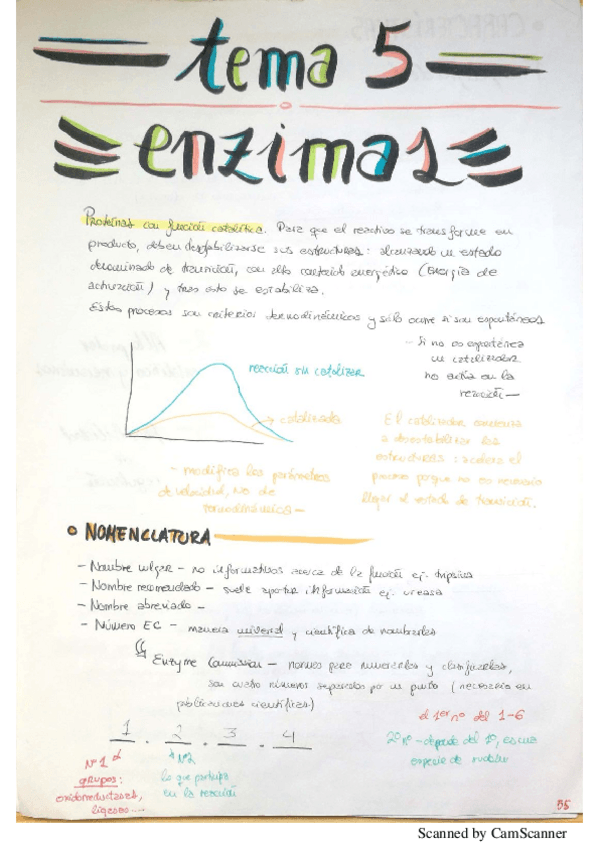 tema 5
enzimas
Proteínas con función catalítica. Para que el reactivo se transforme en
producto, deben desestabilizarse sus estructuras: alcanzando un estado
denominado de transición, con alto contenido energético (Energía de
activación) y tras esto se estabiliza.
Estos procesos son criterios termodinámicos y sólo ocurre si son espontáneos
- Si no es espontánea
un catalizador
no actúa en la
reacción -
reacción sin catalizar
catalizada
El catalizador comienza
a desestabilizar las
estructuras: acelera el
proceso porque no es necesario
llegar al estado de transición.
- modifica los parámetros
de velocidad, no de
termodinámicos -
NOMENCLATURA
- Nombre vulgar - no informativos acerca de la función ej. tripsina
- Nombre recomendado - suele aportar información ej. ureasa
- Nombre abreviado -
- Número EC - manera universal y científica de nombrarlas
Enzyme Commission - normas para numerarlas y clasificarlas,
son cuatro números separados por un punto (necesario en
publicaciones científicas)
1 . 2 . 3 . 4
el 1er nº del 1-6
2º nº - depende del 1º, es una
especie de
Nº 1
grupos:
oxidorreductasas,
ligasas....
Nº2
lo que participa
en la reacción
55
Scanned by CamScanner